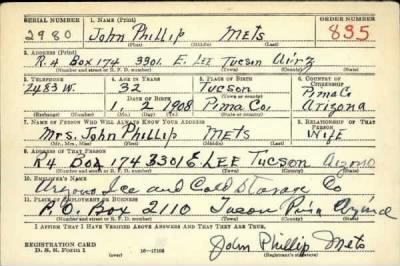 SERIAL NUMBER 1. NAME (Print) ORDER NUMBER
2980 John Phillip Mets 835
(First) (Middle) (Last)
2. ADDRESS (Print)
R4 Box 174 3301 E. LEE Tucson Airz
(Number and street or R. F. D. number) (Town) (County) (State)
3. TELEPHONE 4. AGE IN YEARS 5. PLACE OF BIRTH 6. COUNTRY OF CITIZENSHIP
2483 W. 32 Tucson Pima Co
DATE OF BIRTH (Town or county)
1 2 1908 Pima Co. Arizona
(Mo.) (Day) (Yr.) (State or country)
7. NAME OF PERSON WHO WILL ALWAYS KNOW YOUR ADDRESS 8. RELATIONSHIP OF THAT PERSON
Mrs. John Phillip METS Wife
(Mr., Mrs., Miss) (First) (Middle) (Last)
9. ADDRESS OF THAT PERSON
R4 Box 174 3301 E. LEE Tucson Arizona
(Number and street or R. F. D. number) (Town) (County) (State)
10. EMPLOYER'S NAME
Arizona Ice and Cold Storage Co
11. PLACE OF EMPLOYMENT OR BUSINESS
P.O. Box 2110 Tucson Pima
(Number and street or R. F. D. number) (Town) (County) (State)
I AFFIRM THAT I HAVE VERIFIED ABOVE ANSWERS AND THAT THEY ARE TRUE.
John Phillip Mets
REGISTRATION CARD
D. S. S. Form 1 (over) (Registrant's signature)